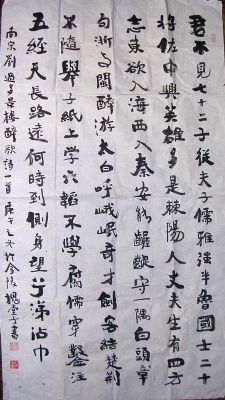 君不見七十二子從夫子儒雅強半魯國士二十
將佐中興英雄多是棘陽人丈夫生有四方
志東欲入海西入秦安能齷齪守一隅白頭章
句浙与閩醉游太白呼峨岷奇才劍客結楚荊
不隨舉子紙上学六韜不學腐儒穿鑿注
五經天長路遠何時到側身望兮涕沾巾
南宋劉過多景樓醉歌詩一首庚午之冬於金陵